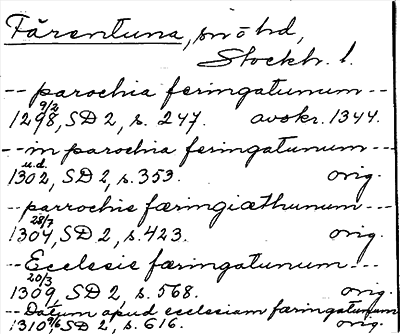 Färentuna, sn o hd,
Stockh. l.
-- parochia feringatunum --
1298 9/2, SD 2, s. 247. avskr. 1344.
-- in parochia feringatunum --
1302 u.d., SD 2, s. 353. orig.
-- parrochie færingiæthunum --
1304 28/7, SD 2, s. 423. orig.
-- Ecclesie færingatunum --
1309 20/3, SD 2, s. 568. orig.
-- Datum apud ecclesiam færingatunum
1310 9/6 SD 2, s. 616. orig.